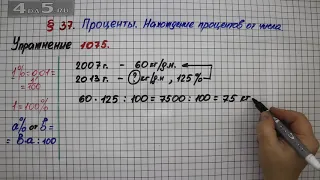 4DA5.RU
§ 37. Проценты. Нахождение процентов от числа
Упражнение 1075.
1% = 0,01 =
= 1/100
1 = 100%
a% от B =
= B·a : 100
2007 г. - 60 кг/д.н.
2013 г. - ? кг/д.н., 125%
60 · 125 : 100 = 7500 : 100 = 75 кг